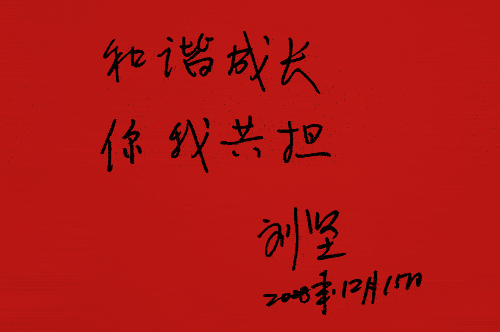 和谐成长
你我共担
刘坚
2008年12月15日